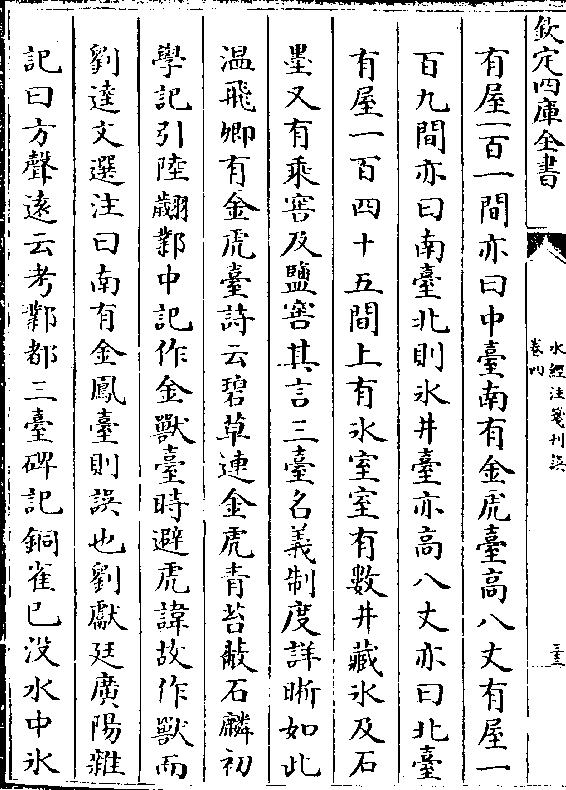 欽定四庫全書
水經注箋刊誤
卷四
三三
有屋一百一間亦曰中臺南有金虎臺高八丈有屋一
百九間亦曰南臺北則氷井臺亦高八丈亦曰北臺
有屋一百四十五間上有氷室室有數井藏氷及石
墨又有乘窖及鹽窖其言三臺名義制度詳晰如此
温飛卿有金虎臺詩云碧草連金虎青苔蔽石麟初
學記引陸翽鄴中記作金獸臺時避虎諱故作獸而
劉逵文選注曰南有金鳳臺則誤也劉獻廷廣陽雜
記曰方聲遠云考鄴都三臺碑記銅雀已没水中氷